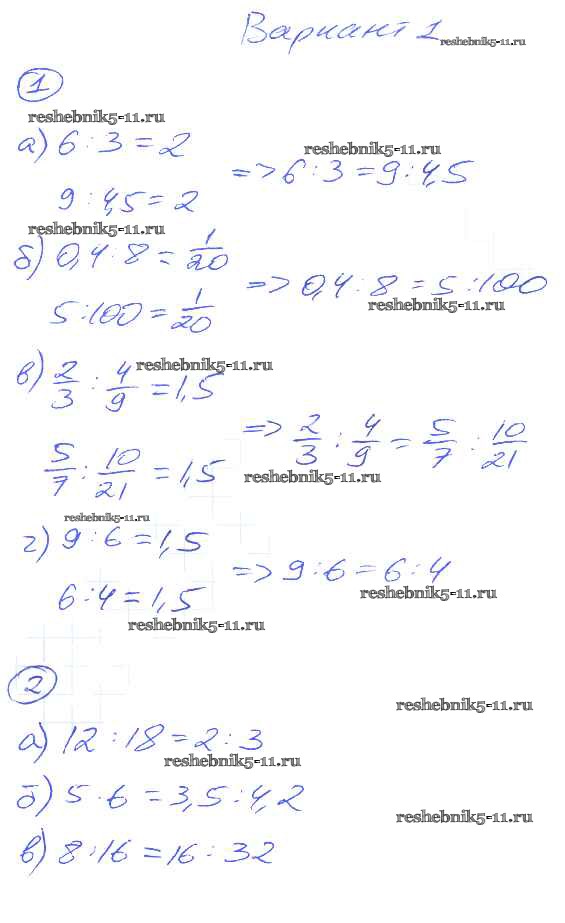 Вариант 1 reshebnik5-11.ru
1
reshebnik5-11.ru
а) 6 : 3 = 2
reshebnik5-11.ru
=> 6 : 3 = 9 : 4,5
9 : 4,5 = 2
reshebnik5-11.ru
б) 0,4 : 8 = 1/20
=> 0,4 : 8 = 5 : 100
reshebnik5-11.ru
5 : 100 = 1/20
reshebnik5-11.ru
в) 2/3 : 4/9 = 1,5
=> 2/3 : 4/9 = 5/7 : 10/21
5/7 : 10/21 = 1,5
reshebnik5-11.ru
reshebnik5-11.ru
г) 9 : 6 = 1,5
=> 9 : 6 = 6 : 4
reshebnik5-11.ru
6 : 4 = 1,5
reshebnik5-11.ru
2
reshebnik5-11.ru
а) 12 : 18 = 2 : 3
reshebnik5-11.ru
б) 5 : 6 = 3,5 : 4,2
reshebnik5-11.ru
в) 8 : 16 = 16 : 32